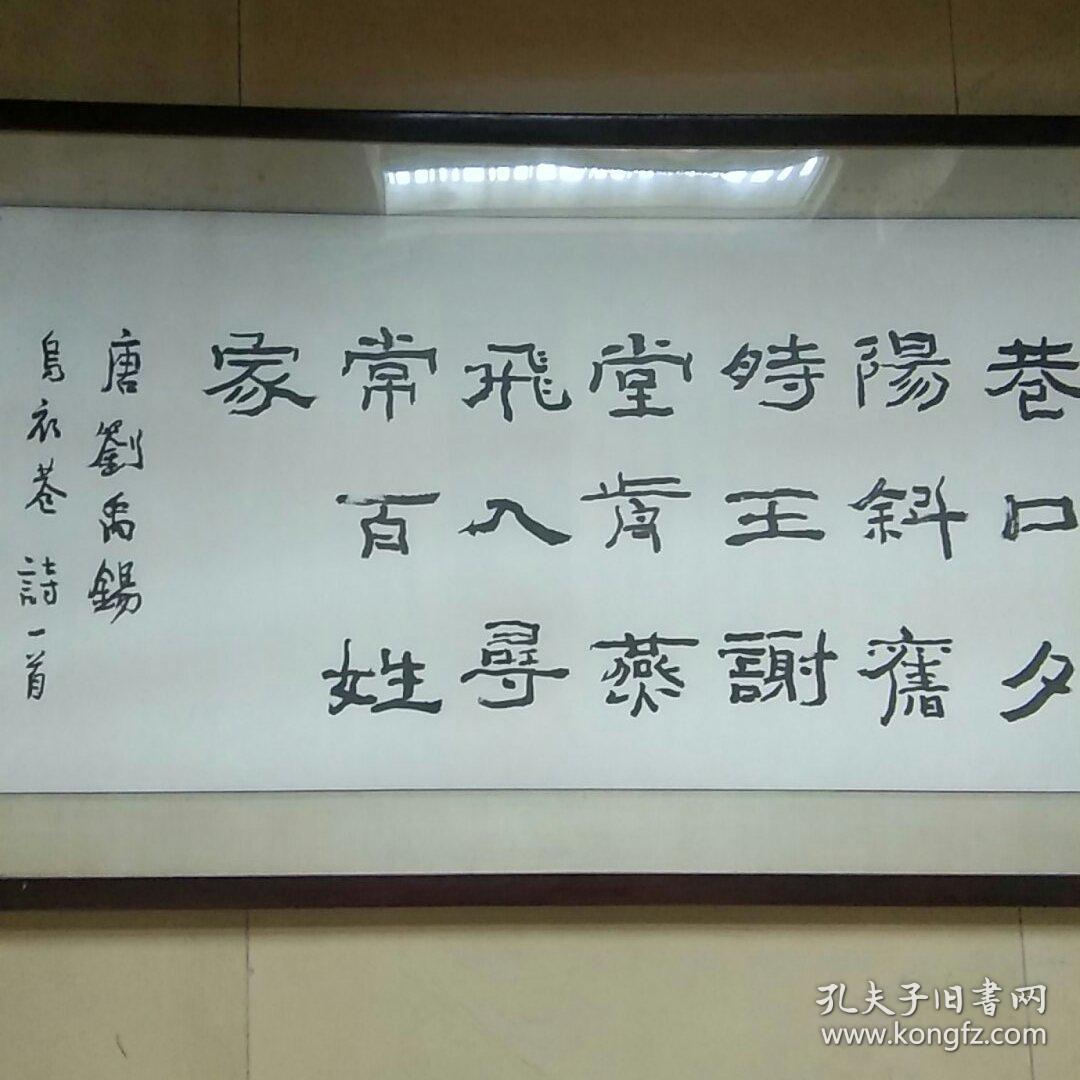 巷口夕
陽斜舊
時王謝
堂前燕
飛入尋
常百姓
家
唐劉禹錫
烏衣巷詩一首
孔夫子旧書网
www.kongfz.com